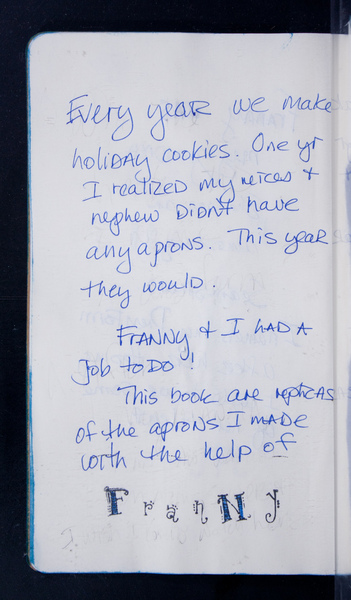 Every year we make
holiday cookies. One yr
I realized my neices +
nephew didnt have
any aprons. This year
they would.
Franny & I had a
job to do!
This book are replicas
of the aprons I made
with the help of
Franny